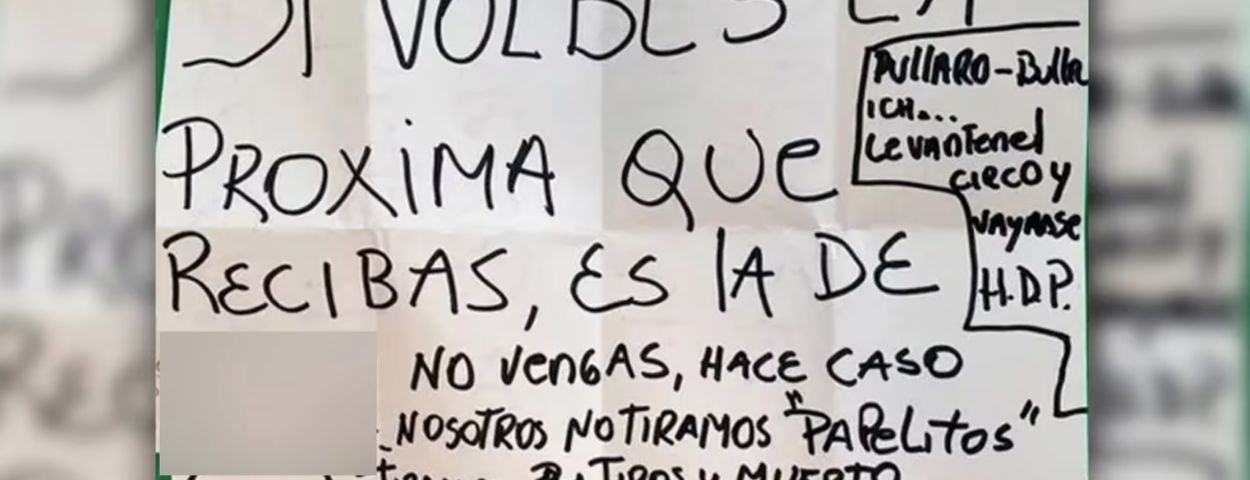 SI VOLBES LA
PROXIMA QUE
RECIBAS, ES lA DE
NO VenGAS, HACE CASO
NOSOTROS NO TIRAMOS "PAPeLitos"
TIROS Y MUERTO
PUllARO-Bullr
ICH...
LevanTenel
CIRCO y
VAYANSE
H.D.P.